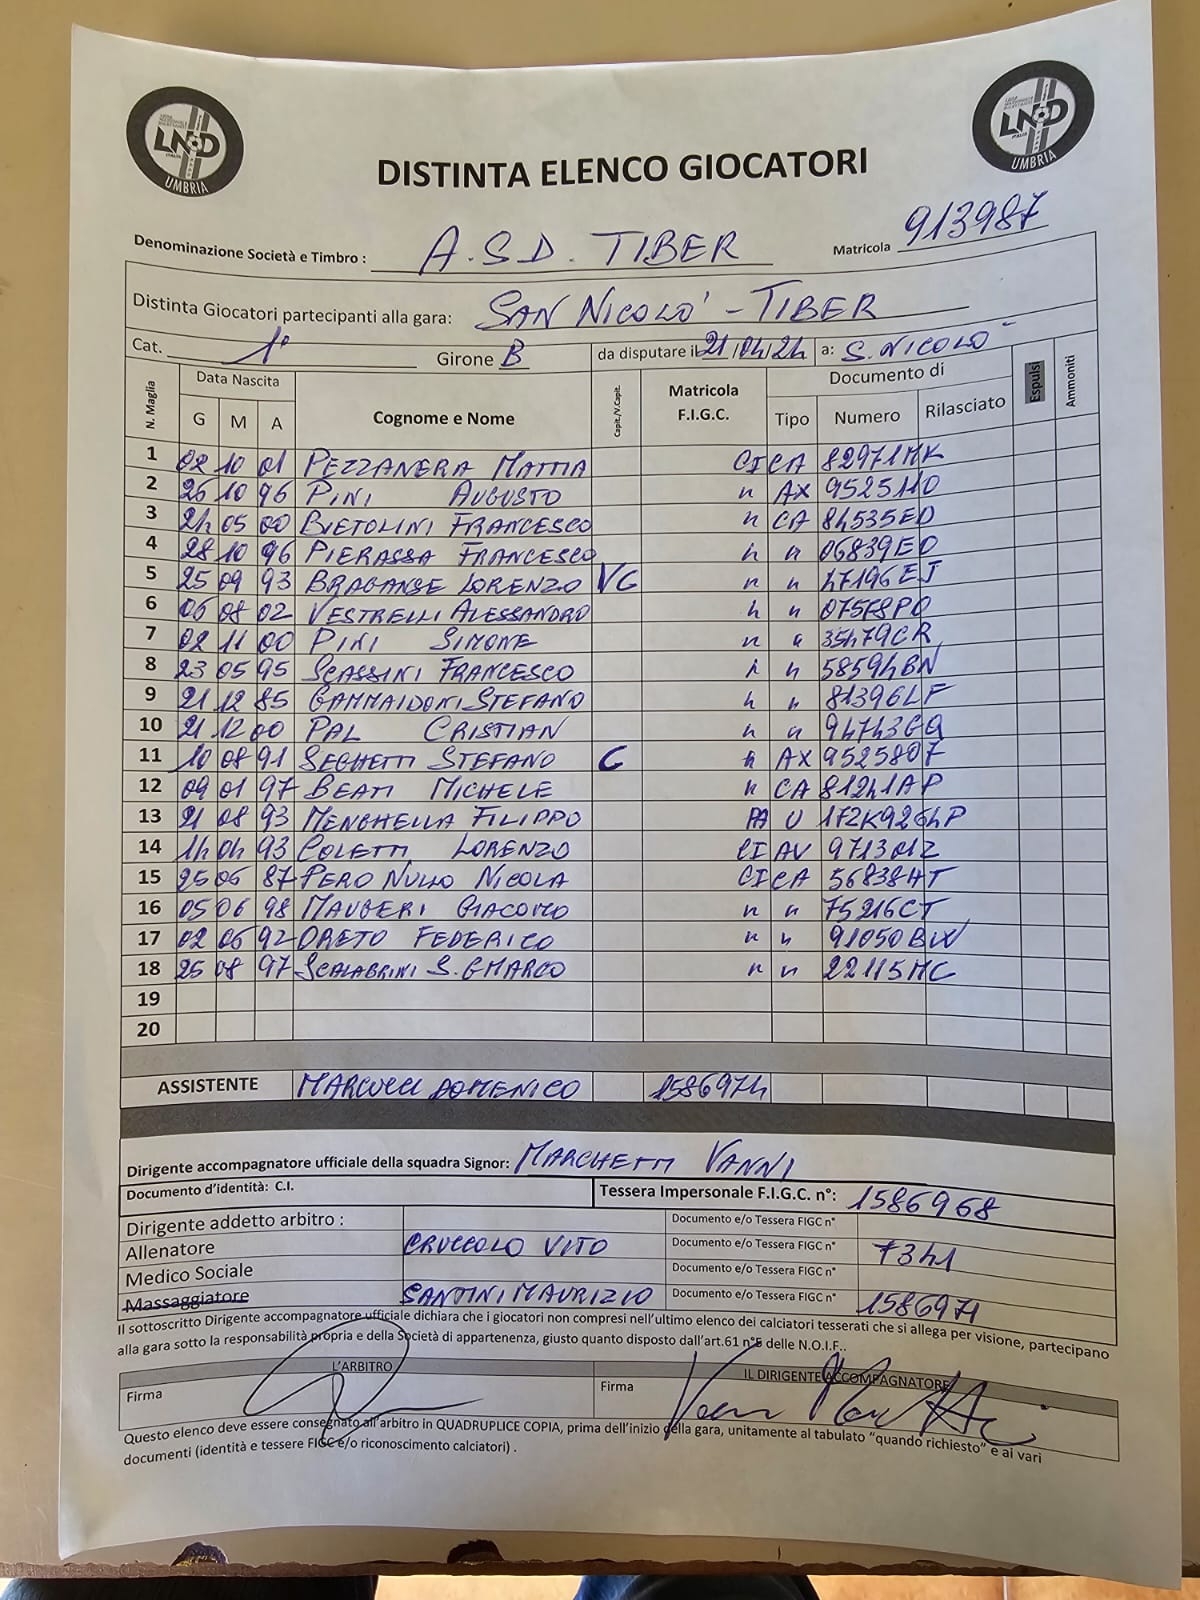 LND
UMBRIA
LND
UMBRIA
DISTINTA ELENCO GIOCATORI
Denominazione Società e Timbro : A.S.D. TIBER Matricola 913987
Distinta Giocatori partecipanti alla gara: SAN NICOLO' - TIBER
Cat. 1° Girone B da disputare il 21/04/24 a: S. NICOLO'
N. Maglia Data Nascita G M A Cognome e Nome Capit./V.Capit. Matricola F.I.G.C. Documento di Tipo Numero Rilasciato Espulsi Ammoniti
1 02 10 01 PEZZANERA MATTIA CI CA 82971MK
2 26 10 96 PINI AUGUSTO " AX 9525110
3 24 05 00 BIETOLINI FRANCESCO " CA 84535ED
4 28 10 96 PIERASSA FRANCESCO " " 06839EO
5 25 09 93 BRAGANSE LORENZO VC " " 47196EJ
6 06 08 02 VESTRELLI ALESSANDRO " "
7 02 11 00 PINI SIMONE " " 35479CR
8 23 05 95 SCASSINI FRANCESCO " " 58594BN
9 21 12 85 GAMMAIDONI STEFANO " " 81396LF
10 21 12 00 PAL CRISTIAN " "
11 10 08 91 SEGHETTI STEFANO C " AX 9525807
12 09 01 97 BEATI MICHELE " CA 81241AP
13 21 08 93 MENGHELLA FILIPPO PA U
14 14 04 93 COLETTI LORENZO CI AV 9713012
15 25 06 87 PERO NULLO NICOLA CI CA 56838HT
16 05 06 98 MAUGERI GIACOMO " " 75216CT
17 02 06 92 ORETO FEDERICO " " 91050BW
18 25 08 97 SCALABRINI S. GMARCO " " 22115MC
19
20
ASSISTENTE MARCUCCI DOMENICO 1586974
Dirigente accompagnatore ufficiale della squadra Signor: MARCHETTI VANNI
Documento d'identità: C.I. Tessera Impersonale F.I.G.C. n°: 1586968
Dirigente addetto arbitro : Documento e/o Tessera FIGC n°
Allenatore CRUCCOLO VITO Documento e/o Tessera FIGC n° 7341
Medico Sociale Documento e/o Tessera FIGC n°
Massaggiatore SANTINI MAURIZIO Documento e/o Tessera FIGC n° 1586971
Il sottoscritto Dirigente accompagnatore ufficiale dichiara che i giocatori non compresi nell'ultimo elenco dei calciatori tesserati che si allega per visione, partecipano
alla gara sotto la responsabilità propria e della Società di appartenenza, giusto quanto disposto dall'art.61 n°5 delle N.O.I.F..
L'ARBITRO IL DIRIGENTE ACCOMPAGNATORE
Firma Firma
Questo elenco deve essere consegnato all'arbitro in QUADRUPLICE COPIA, prima dell'inizio della gara, unitamente al tabulato "quando richiesto" e ai vari
documenti (identità e tessere FIGC e/o riconoscimento calciatori) .